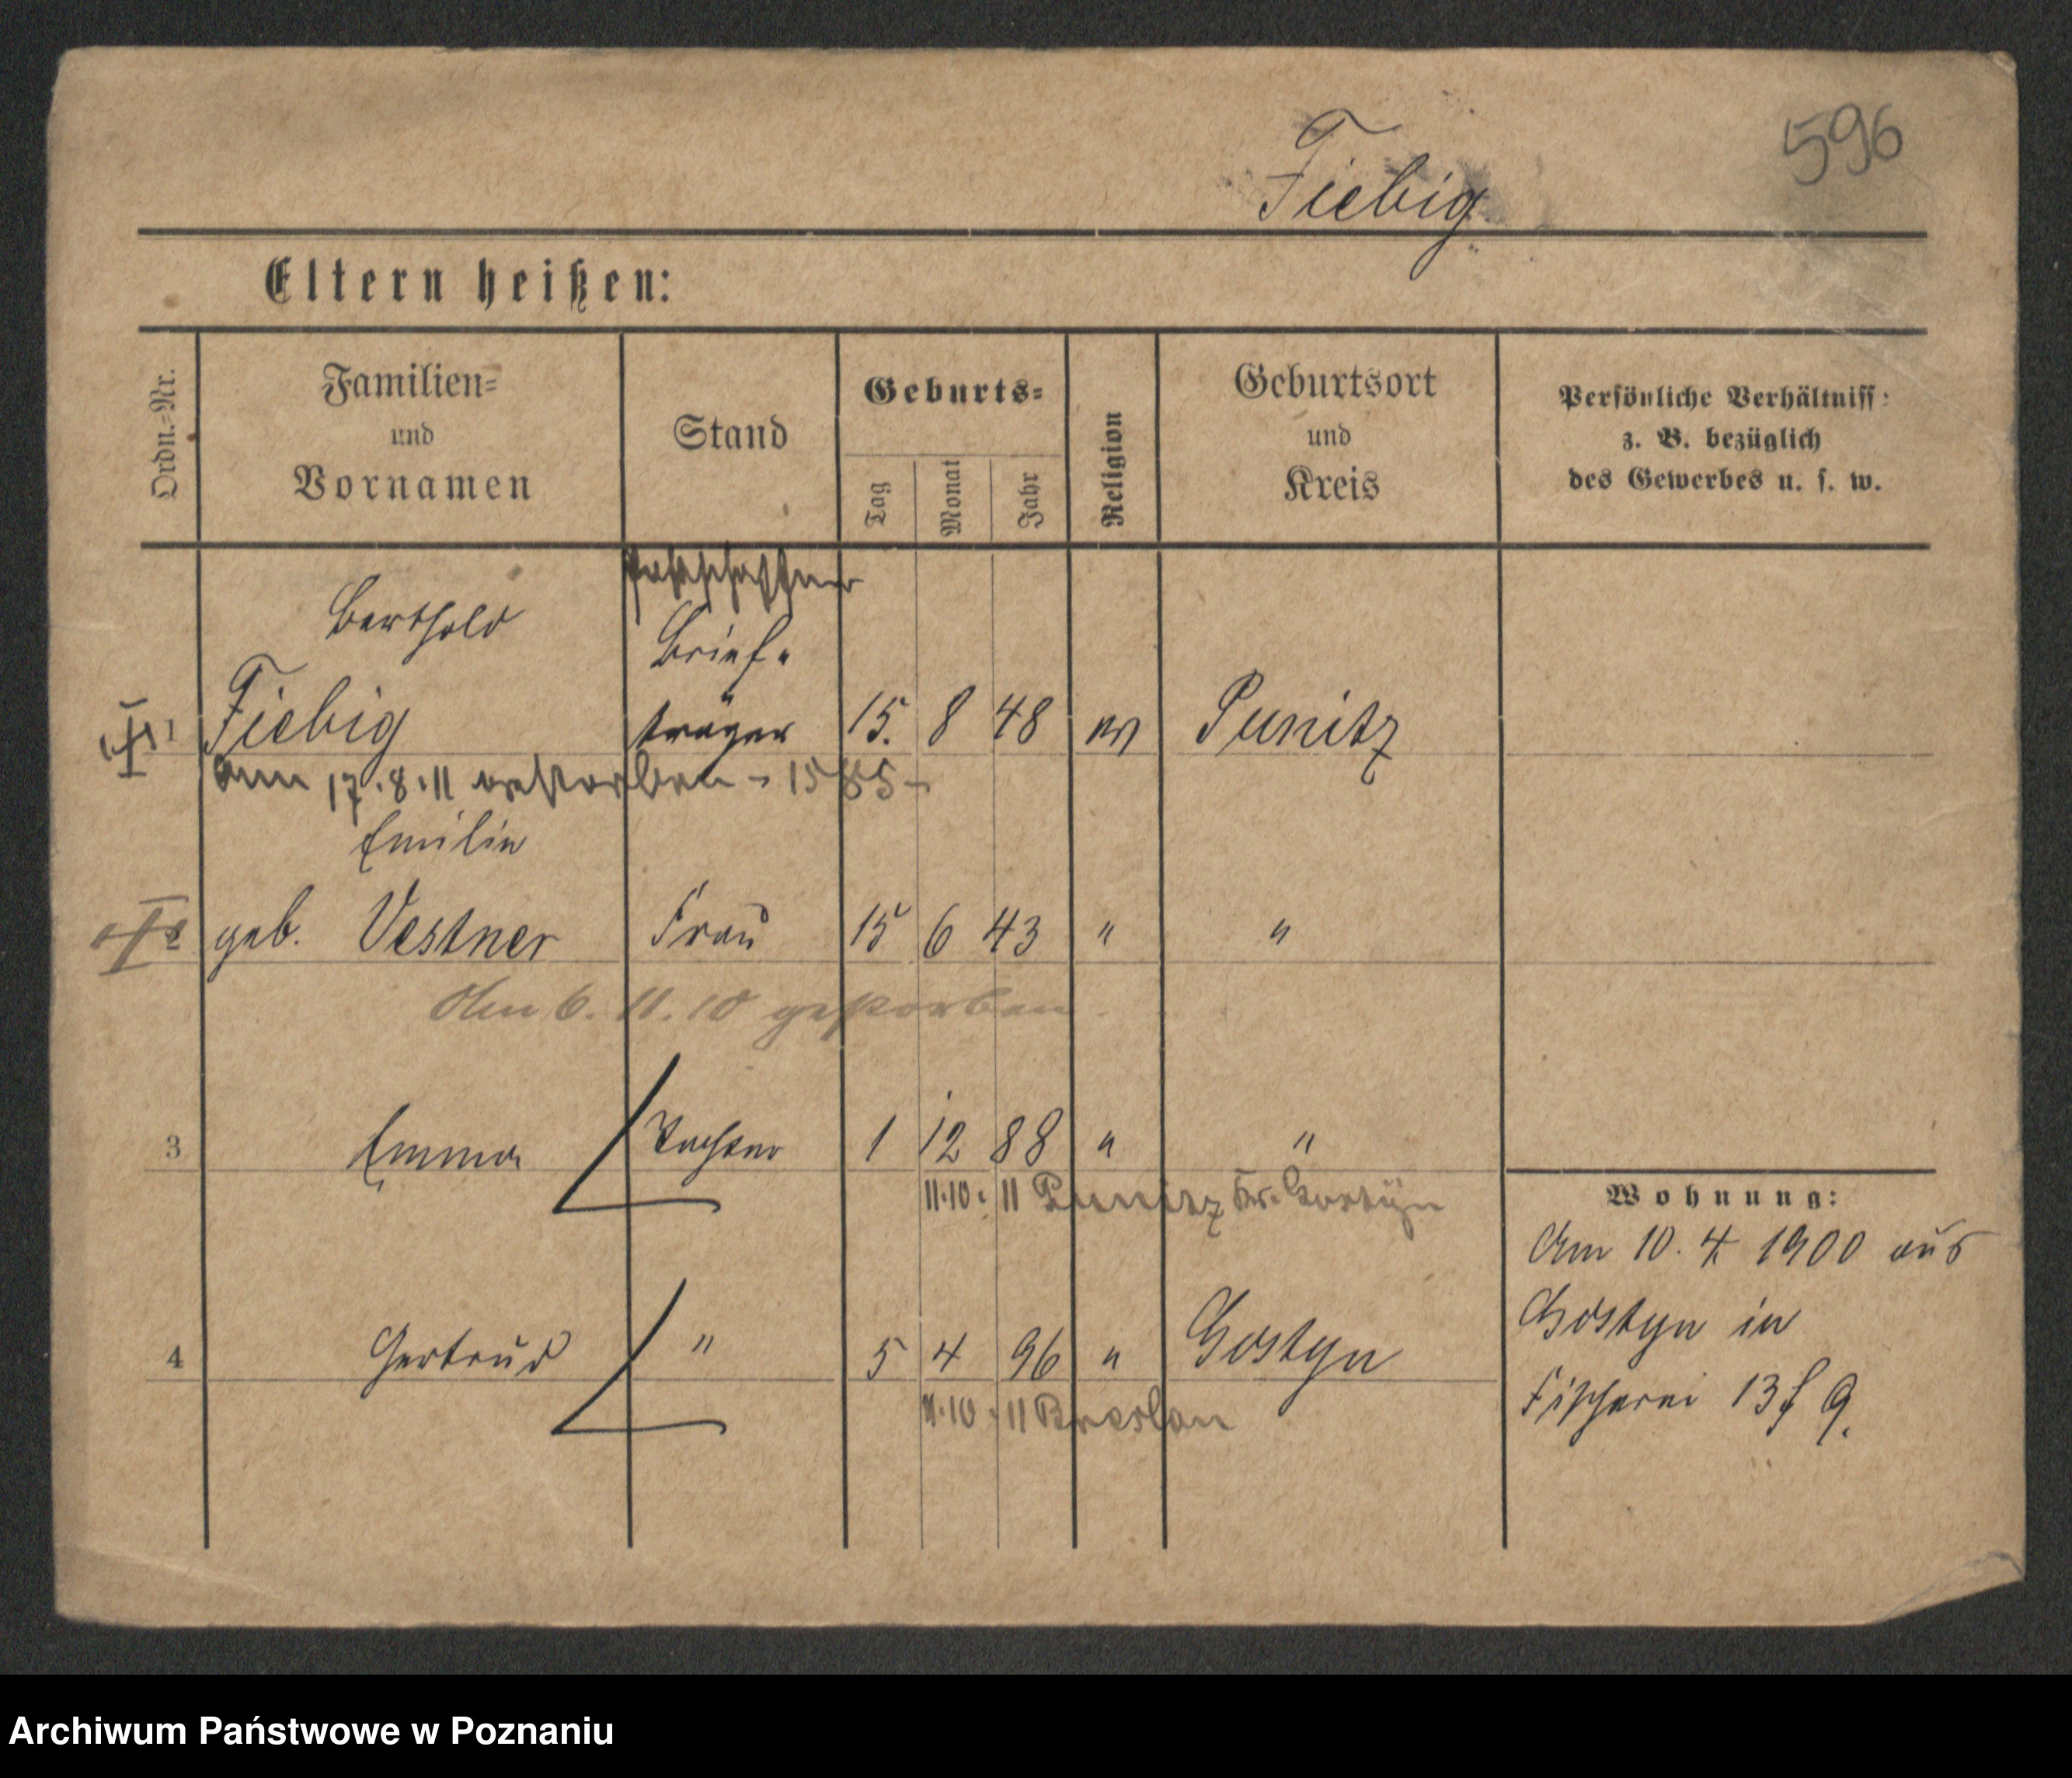 596
Fiebig
Eltern heißen:
Ordn.-Nr.
Familien-
und
Vornamen
Stand
Geburts-
Tag
Monat
Jahr
Religion
Geburtsort
und
Kreis
Persönliche Verhältniss:
z. B. bezüglich
des Gewerbes u. s. w.
Postschaffner
Berthold Brief-
1 Fiebig träger 15. 8 48 ev Punitz
Am 17.8.11 verstorben - 1585 -
Emilie
2 geb. Vestner Frau 15 6 43 " "
Am 6. 11. 10 gestorben.
3 Emma Tochter 1 12 88 " "
11.10.11 Punitz Kr. Gostyn
4 Gertrud " 5 4 96 " Gostyn
11.10.11 Breslau
Wohnung:
Am 10. 4 1900 aus
Gostyn in
Fischerei 13 f 9.
Archiwum Państwowe w Poznaniu